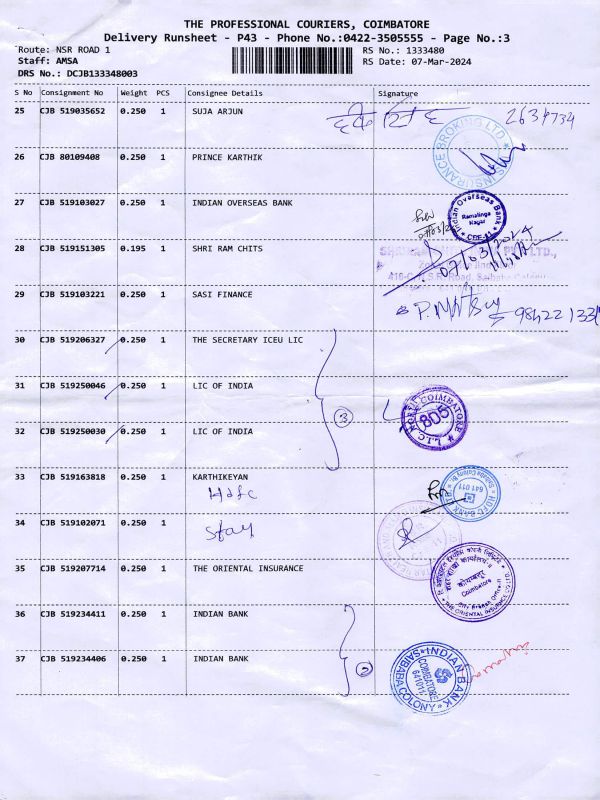 THE PROFESSIONAL COURIERS, COIMBATORE
Delivery Runsheet - P43 - Phone No.:0422-3505555 - Page No.:3
Route: NSR ROAD 1 RS No.: 1333480
Staff: AMSA RS Date: 07-Mar-2024
DRS No.: DCJB133348003
S No Consignment No Weight PCS Consignee Details Signature
25 CJB 519035652 0.250 1 SUJA ARJUN
INSURANCE BROKING LTD.
26 CJB 80109408 0.250 1 PRINCE KARTHIK
27 CJB 519103027 0.250 1 INDIAN OVERSEAS BANK
Indian Overseas Bank
Ramalinga
Nagar
28 CJB 519151305 0.195 1 SHRI RAM CHITS
07/03/2024
29 CJB 519103221 0.250 1 SASI FINANCE
30 CJB 519206327 0.250 1 THE SECRETARY ICEU LIC
31 CJB 519250046 0.250 1 LIC OF INDIA
3
805
COIMBATORE
32 CJB 519250030 0.250 1 LIC OF INDIA
33 CJB 519163818 0.250 1 KARTHIKEYAN
Hdfc
641 011
34 CJB 519102071 0.250 1
Stay
35 CJB 519207714 0.250 1 THE ORIENTAL INSURANCE
कोयम्बतूर
Coimbatore
THE ORIENTAL INSURANCE CO LTD.
36 CJB 519234411 0.250 1 INDIAN BANK
37 CJB 519234406 0.250 1 INDIAN BANK
2
INDIAN BANK
COIMBATORE
641011
SAIBABA COLONY